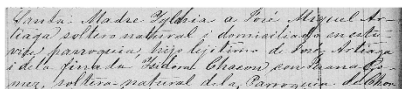 Santa Madre Yglesia a José Miguel Ar-
tiaga soltero natural i domiciliado en esta
vice parroquia, hijo lejitimo de José Artiaga
i de la finada Isidora Chacon con Juana Go-
mez, soltera natural de la Parroquia de Chon